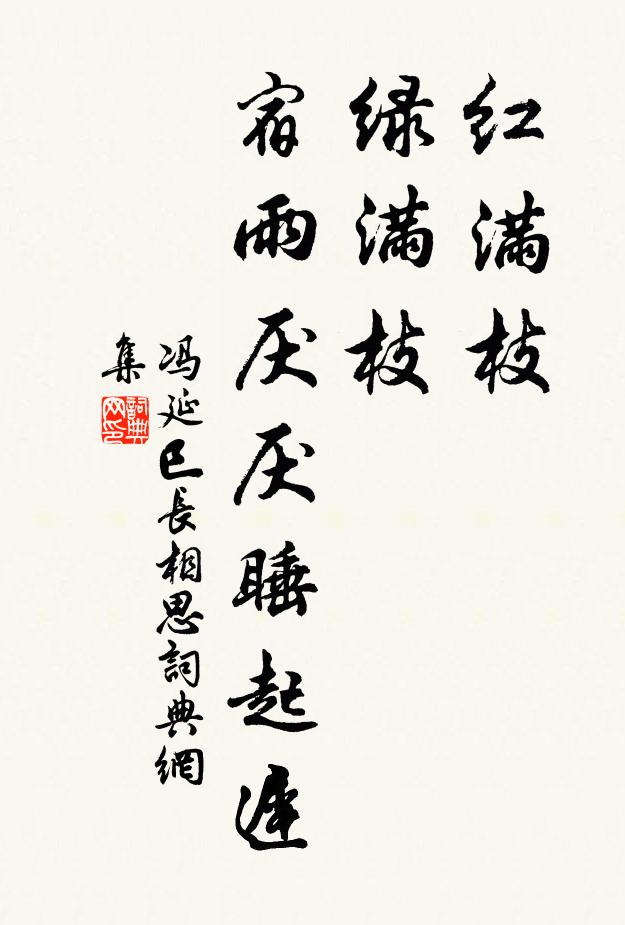 红满枝
绿满枝
宿雨厌厌睡起迟
冯延巳长相思詞典網
集
詞典
网印